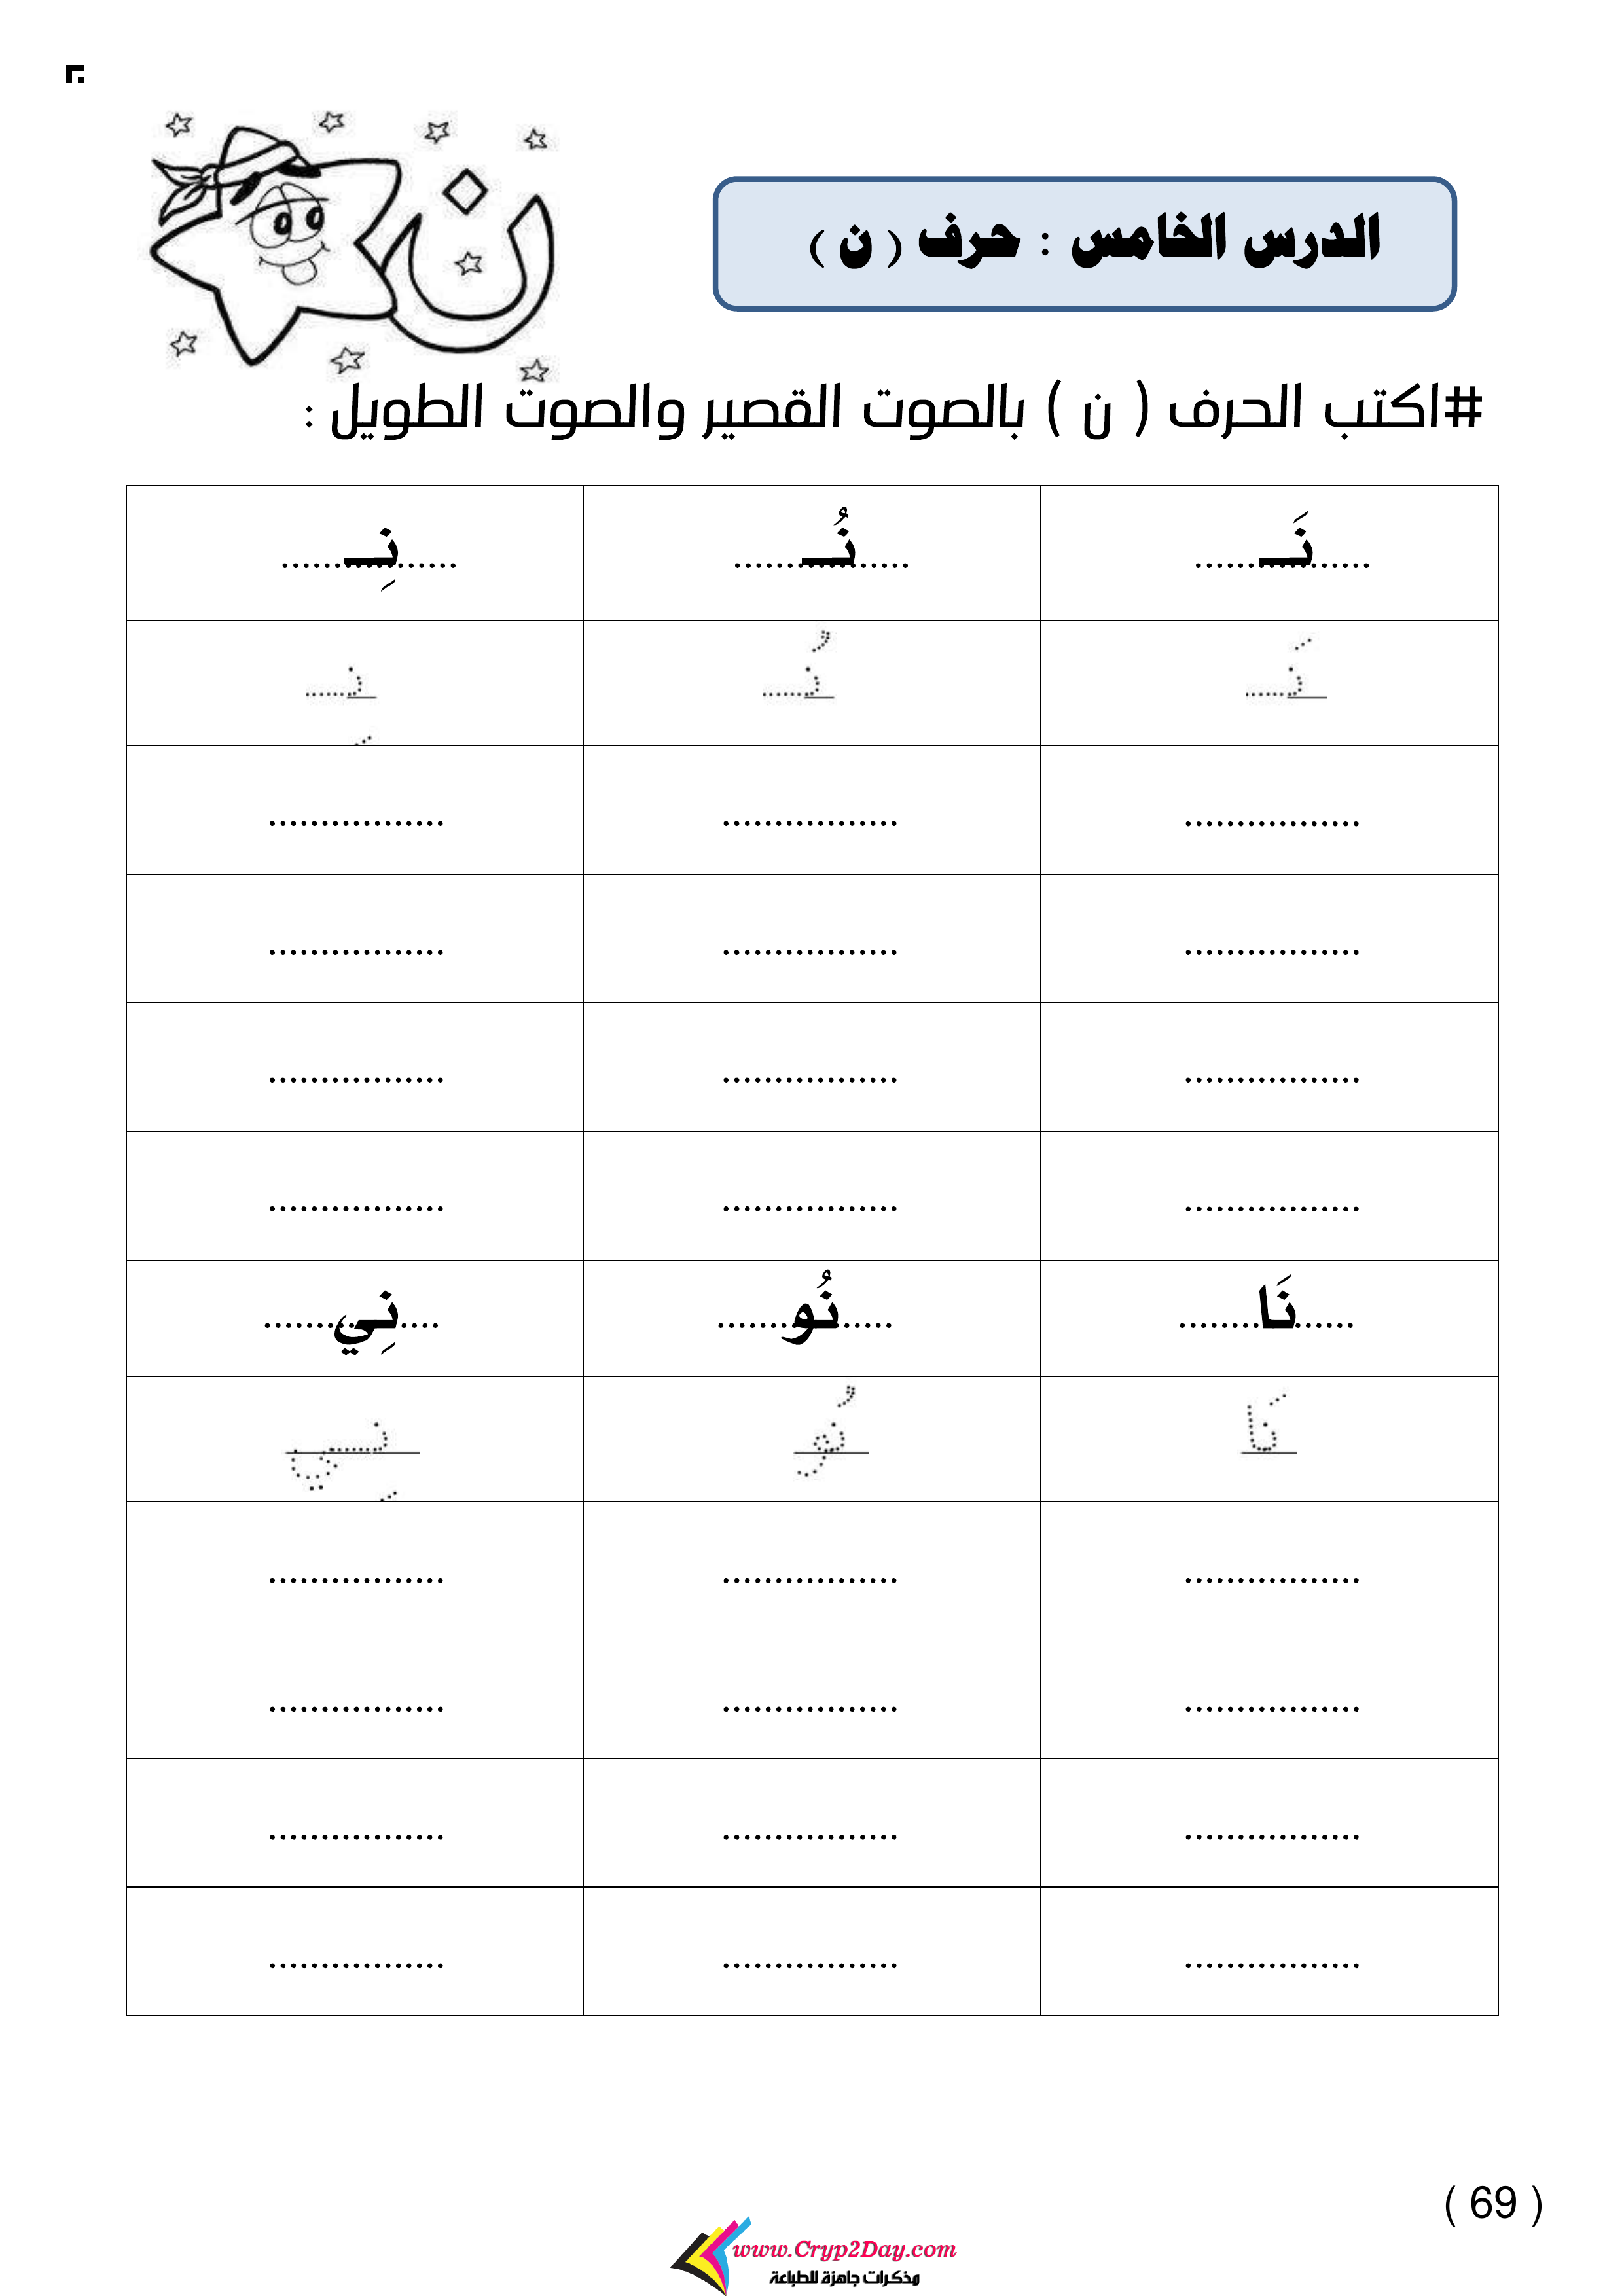 ن
الدرس الخامس : حرف ( ن )
#اكتب الحرف ( ن ) بالصوت القصير والصوت الطويل :
نَـ نُـ نِـ
نَـ نُـ نِـ
................ ................ ................
................ ................ ................
................ ................ ................
................ ................ ................
نَا نُو نِي
نَا نُو نِي
................ ................ ................
................ ................ ................
................ ................ ................
................ ................ ................
( 69 )
www.Cryp2Day.com
مذكرات جاهزة للطباعة